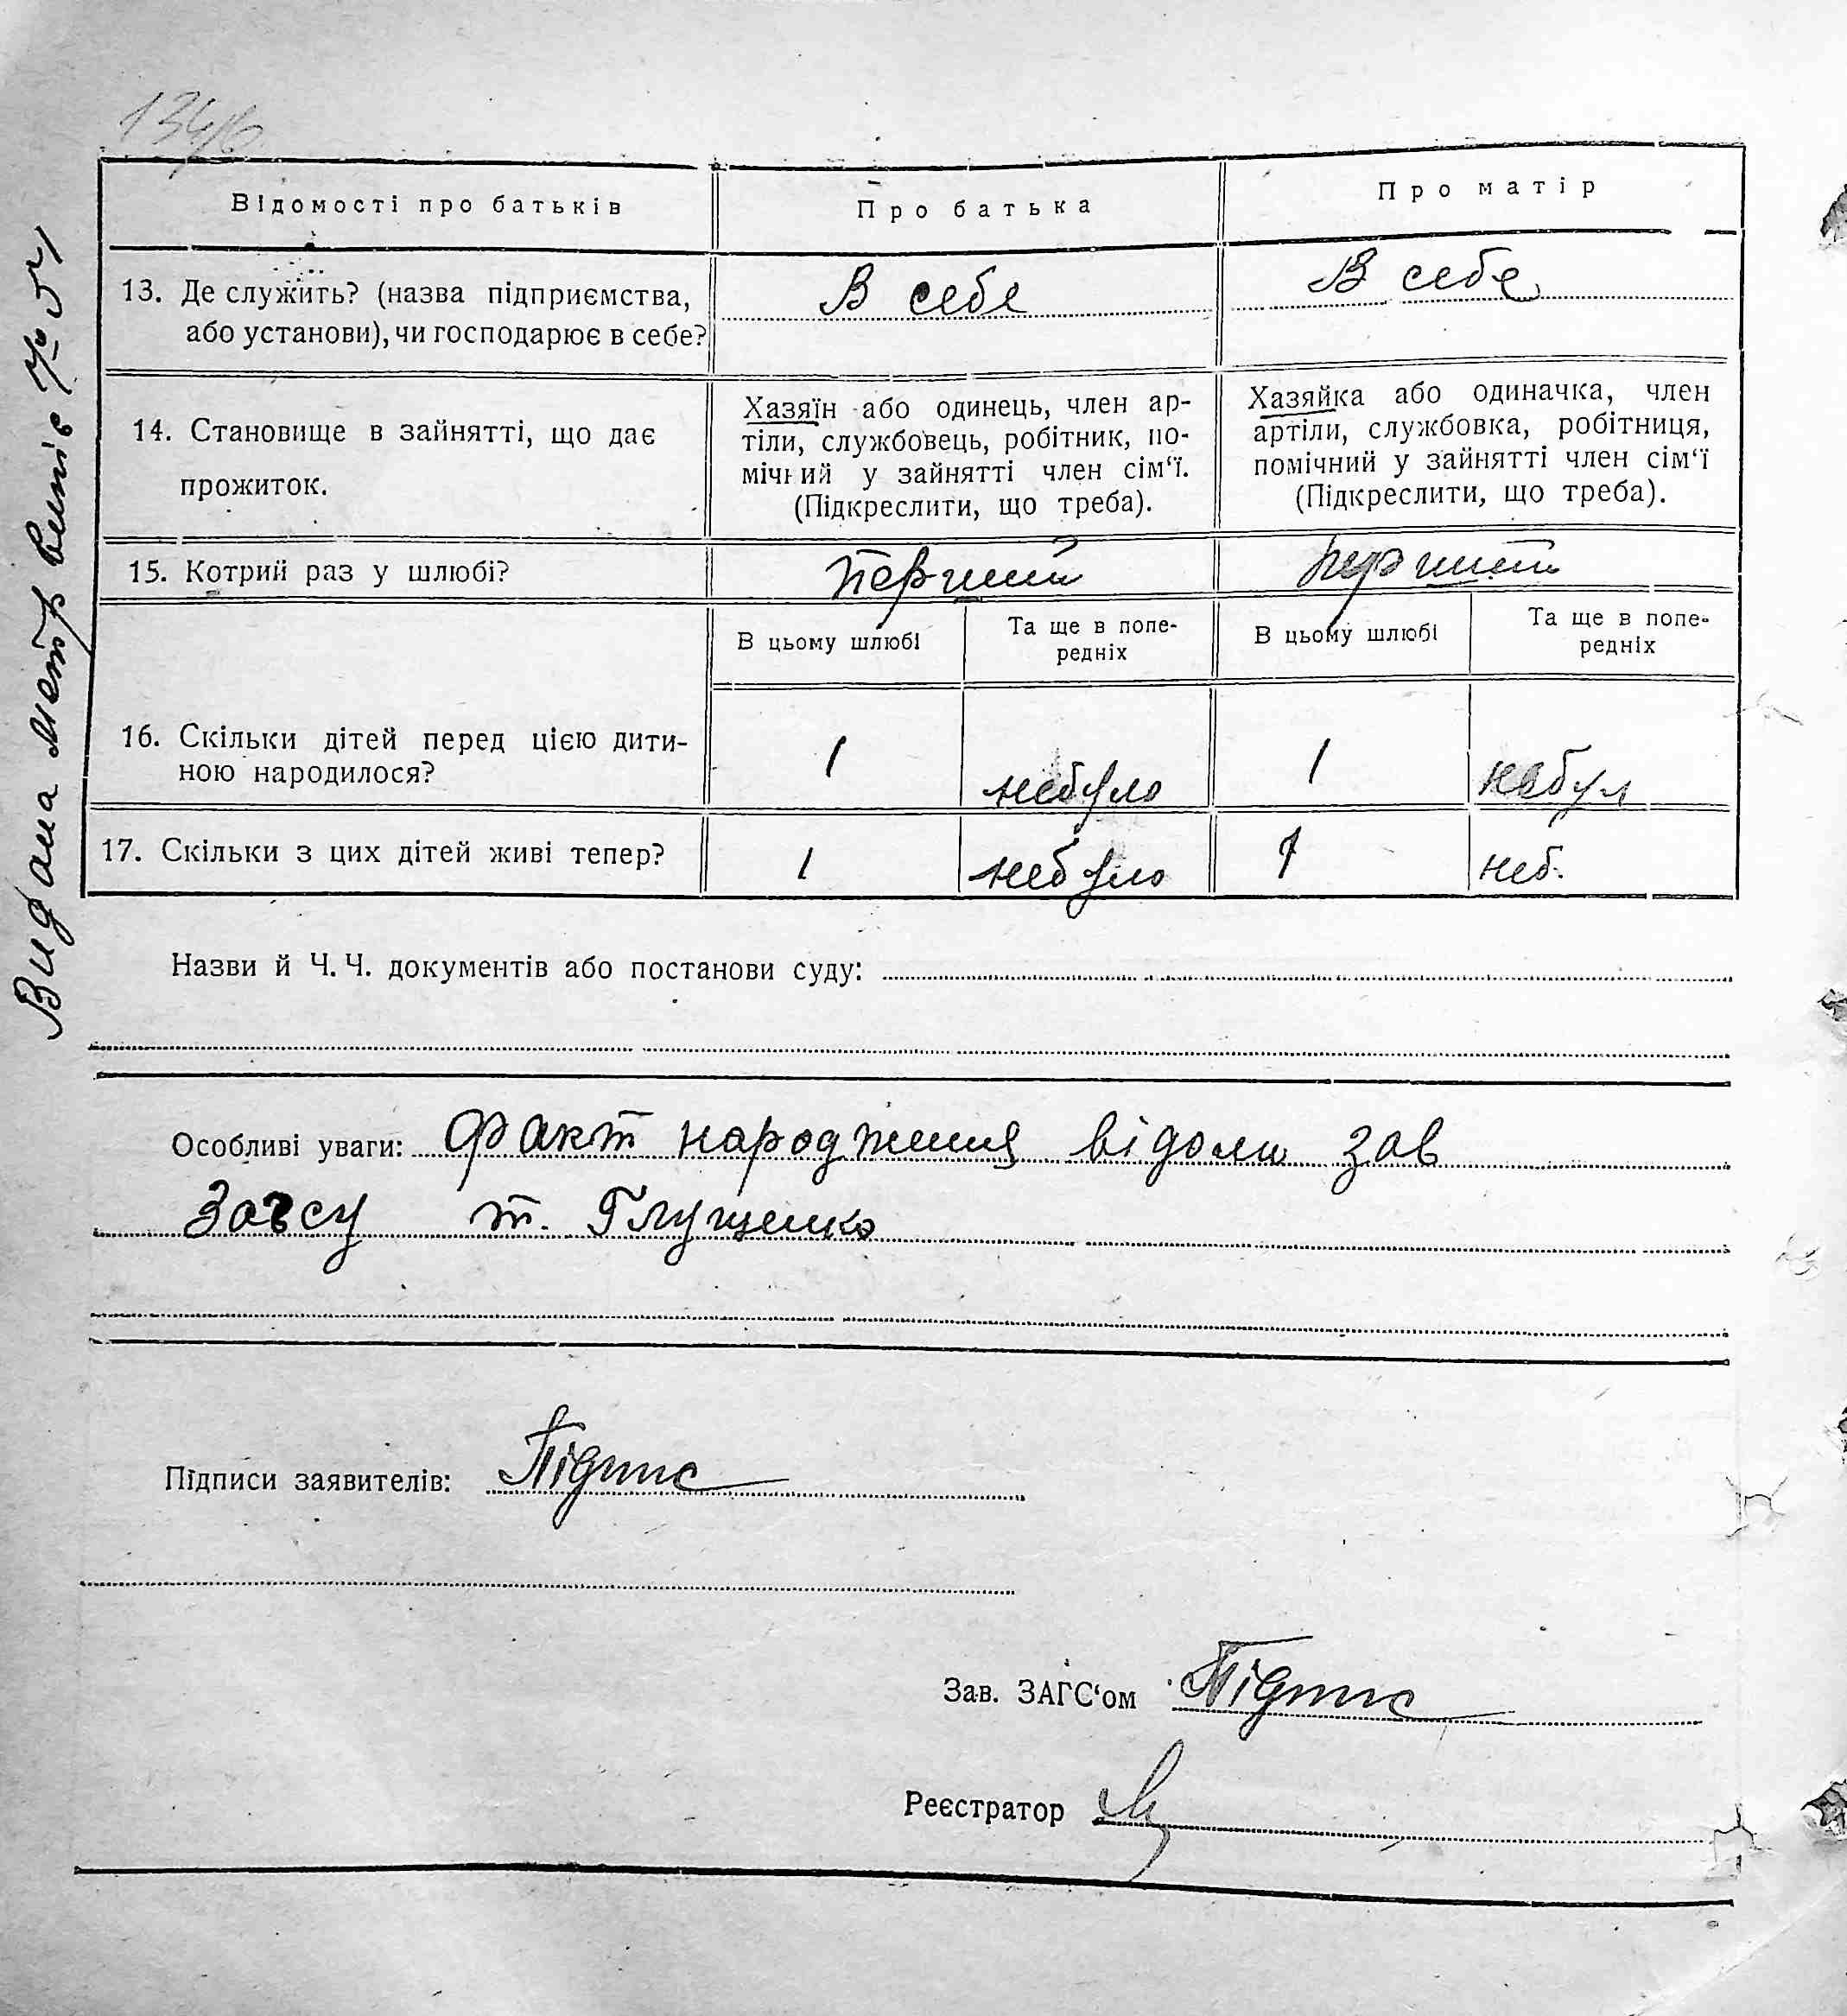 Відомості про батьків
Про батька
Про матір
13. Де служить? (назва підприємства,
або установи), чи господарює в себе?
В себе
В себе
14. Становище в зайнятті, що дає
прожиток.
Хазяїн або одинець, член ар-
тіли, службовець, робітник, по-
мічний у зайнятті член сім‘ї.
(Підкреслити, що треба).
Хазяйка або одиначка, член
артіли, службовка, робітниця,
помічний у зайнятті член сім‘ї
(Підкреслити, що треба).
15. Котрий раз у шлюбі?
перший
перший
В цьому шлюбі
Та ще в попе-
редніх
В цьому шлюбі
Та ще в попе-
редніх
16. Скільки дітей перед цією дити-
ною народилося?
1
небуло
1
небул
17. Скільки з цих дітей живі тепер?
1
небуло
1
неб.
Назви й Ч. Ч. документів або постанови суду:
Особливі уваги: Факт народження відоми зав
Загсу т. Глущенко
Підписи заявителів: Підпис
Зав. ЗАГС‘ом Підпис
Реєстратор
Видана метр